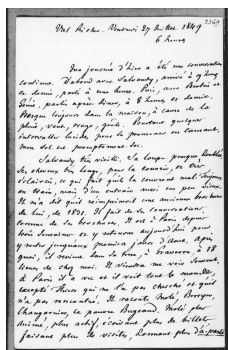 2369
Val Richer - Vendredi 27 Juillet 1849
6 heures
Ma journée d'hier a été une conversation
continue. D'abord avec Salvandy, arrivé à 9 heures
et demie, parti à une heure. Puis, avec
partis après dîner, à 8 heures et demie.
toujours dans la maison, à cause de la
pluie, vent, orage, grêle. quelques
intervalles lucides, pour se promener en causant.
Mon sol est promptement sec.
Salvandy très vieilli. Sa loupe presque doublée.
Ses cheveux fort longs, pour la couvrir, et
éclaircis, ce qui fait que le couvert mal. Toujours
en train, mais d'un entrain aussi un peu vieux.
Il m'a dit qu'il réimprimait une ancienne brochure
de lui, de 1831. Il fait de la conversation
comme de la brochure. Il est à Paris depuis
trois semaines et y retourne aujourd'hui pour
y rester jusqu'aux premiers jours d'août, après
quoi, il revient dans sa terre, à Graveron, à 18
lieues de chez moi. Il viendra me voir souvent.
à Paris il a vu et il voit tout le monde,
excepté Thiers qui ne l'a pas cherché et qu'il
n'a pas rencontré. Il raconte Molé, Berryer,
Changarnier, le pauvre Bugeaud. Molé plus
animé, plus actif, écrivant plus de billets,
faisant plus de visites, donnant plus d'a parte